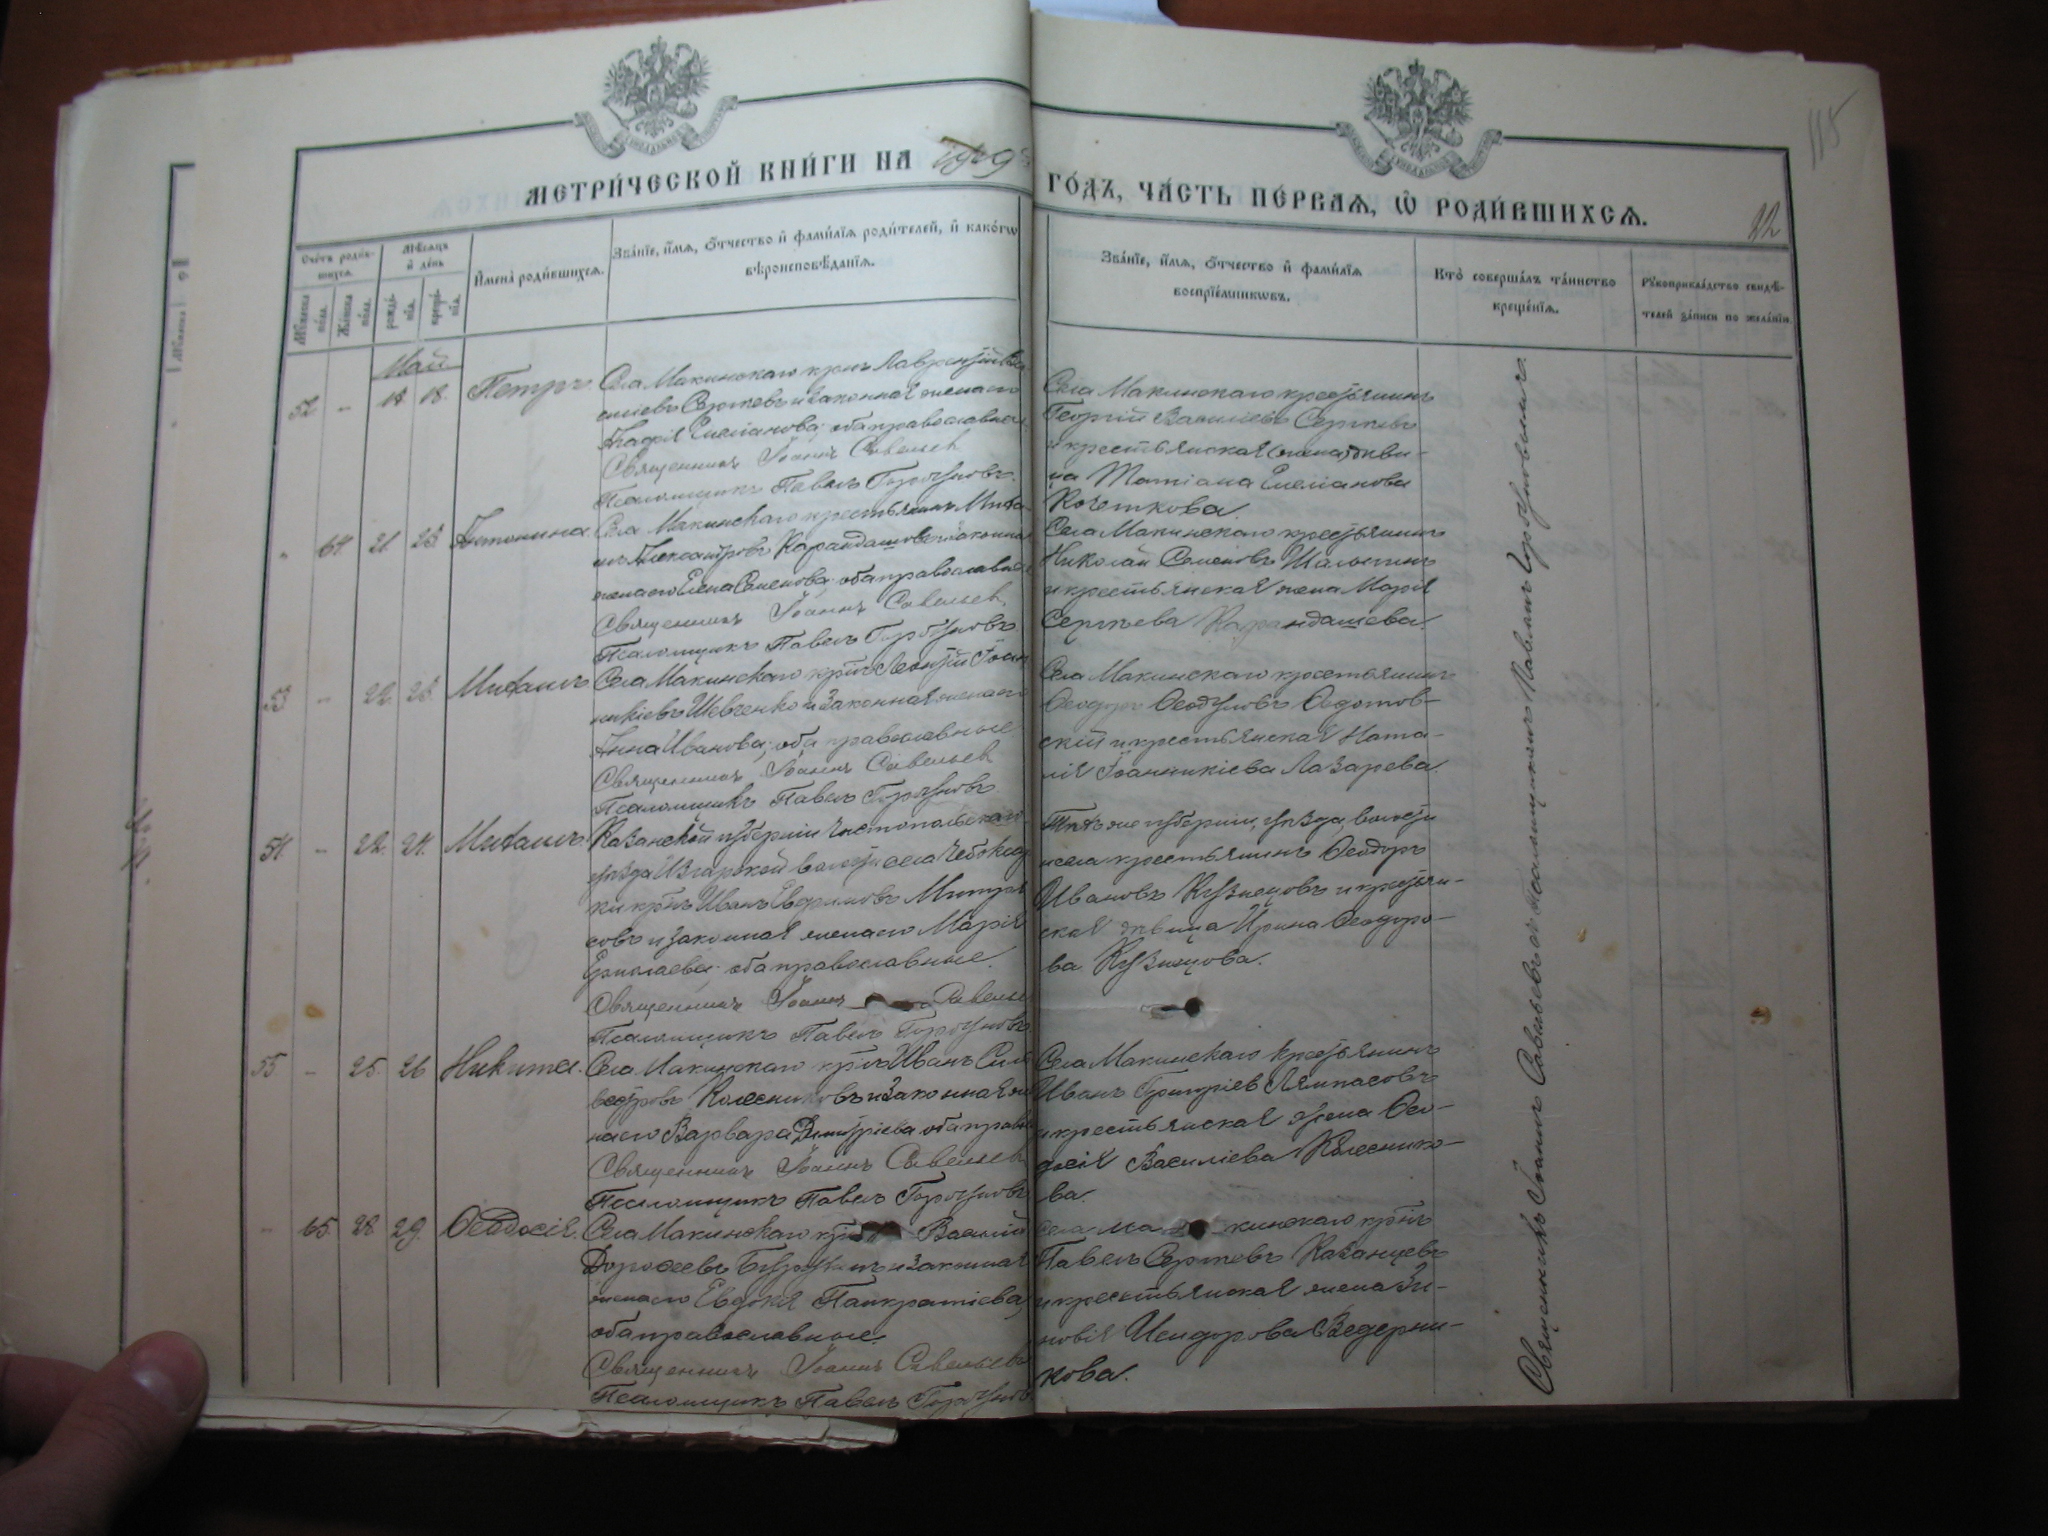 МЕТРИ́ЧЕСКОЙ КНИ́ГИ НА 1909 ГО́ДЪ, ЧА́СТЬ ПЕ́РВАЯ, Ѡ РОДИ́ВШИХСЯ.
115
22
Сче́тъ роди́вшихся.
Му́жеска по́ла.
Же́нска по́ла.
Мѣ́сяцъ и́ де́нь
рожде́нїя.
креще́нїя.
И́мена̀ роди́вшихся.
Зва́нїе, и́мя, ѻ́тчество и́ фами́лїя роди́телей, и́ како́гѡ
вѣроисповѣ́данїя.
Зва́нїе, и́мя, ѻ́тчество и́ фами́лїя
воспрїе́мникѡвъ.
Кто̀ соверша́лъ та́инство
креще́нїя.
Рꙋкоприкла́дство свидѣ́-
телей за́писи по жела́нїю.
Май
52 - 18 18. Петръ.
Села Макинскаго крнъ Лаврентій Ва-
силіевъ Сергѣевъ и законная жена его
Агафія Емеліанова; оба православные
Священникъ Іоаннъ Савельев
Псаломщикъ Павелъ Горбуновъ.
Села Макинскаго крестьянинъ
Георгій Василіевъ Сергѣевъ
и крестьянская (жена) дѣви-
ца Татіана Емеліанова
Кочеткова.
" 64. 21. 23. Антонина.
Села Макинскаго крестьянинъ Миха-
илъ Александровъ Карандашовъ и законная
жена его Елена Семенова; оба православные
Священникъ Іоаннъ Савельев
Псаломщикъ Павелъ Горбуновъ
Села Макинскаго крестьянинъ
Николай Семеновъ
и крестьянская жена Марія
Сергѣева Карандашева.
53 - 22. 23. Михаилъ
Села Макинскаго крнъ Леонтій Іоан-
никіевъ Шевченко и законная жена его
Анна Иванова; оба православные
Священникъ Іоаннъ Савельев
Псаломщикъ Павелъ Горбуновъ
Села Макинскаго крестьянинъ
Ѳеодоръ Ѳеодуловъ Ѳедотов-
скій и крестьянская Ната-
лія Іоанникіева Лазарева.
54. - 22. 24. Михаилъ.
Казанской губерніи Чистопольскаго
уѣзда Изгарской волости села Чебоксар-
ки крнъ Иванъ Евфимовъ Митряс-
совъ и законная жена его Марія
Ермолаева; оба православные.
Священникъ Іоаннъ Савельев
Псаломщикъ Павелъ Горбуновъ
Тѣхъ же губерніи, уѣзда, волости
и села крестьянинъ Ѳеодоръ
Ивановъ Кузнецовъ и крестьян-
ская дѣвица Ирина Ѳеодоро-
ва Кузнецова.
55 - 25. 26 Никита.
Села Макинскаго крнъ Иванъ Силь-
вестровъ Колесниковъ и законная же-
на его Варвара Димитріева оба правос
Священникъ Іоаннъ Савельев
Псаломщикъ Павелъ Горбуновъ
Села Макинскаго крестьянинъ
Иванъ Григоріев Лампасовъ
и крестьянская жена Ѳео-
досія Василіева Колеснико-
ва.
- 65. 28. 29. Ѳеодосія.
Села Макинскаго крнъ Василій
Дороѳеевъ и законная
жена его Евдокія Панкратіева,
оба православные.
Священникъ Іоаннъ Савельевъ
Псаломщикъ Павелъ Горбунов
Села Макинскаго крнъ
Павелъ Сергѣевъ Казанцевъ
и крестьянская жена Зи-
новія Исидорова Ведерни-
кова.
Священникъ Іоаннъ Савельевъ съ псаломщикомъ Павломъ Горбуновымъ.